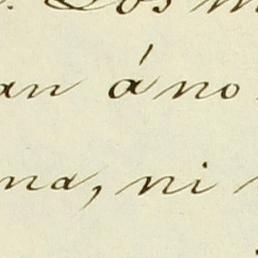 . Los m
an á no
na, ni